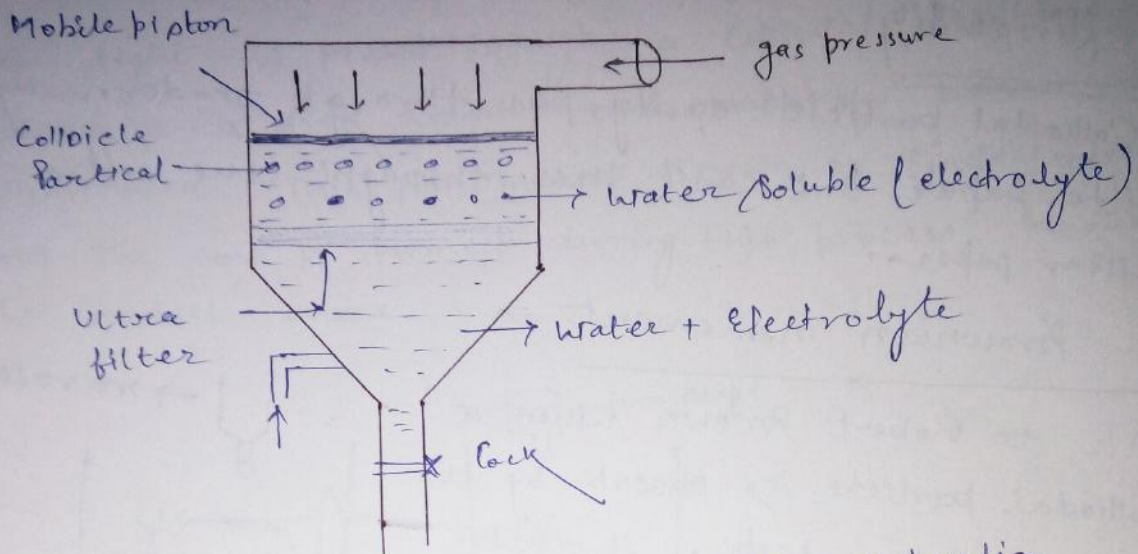 Mobile pipton
gas pressure
Colloicle
Partical
Water /Soluble (electrolyte)
Ultra
filter
Water + Electrolyte
Cock